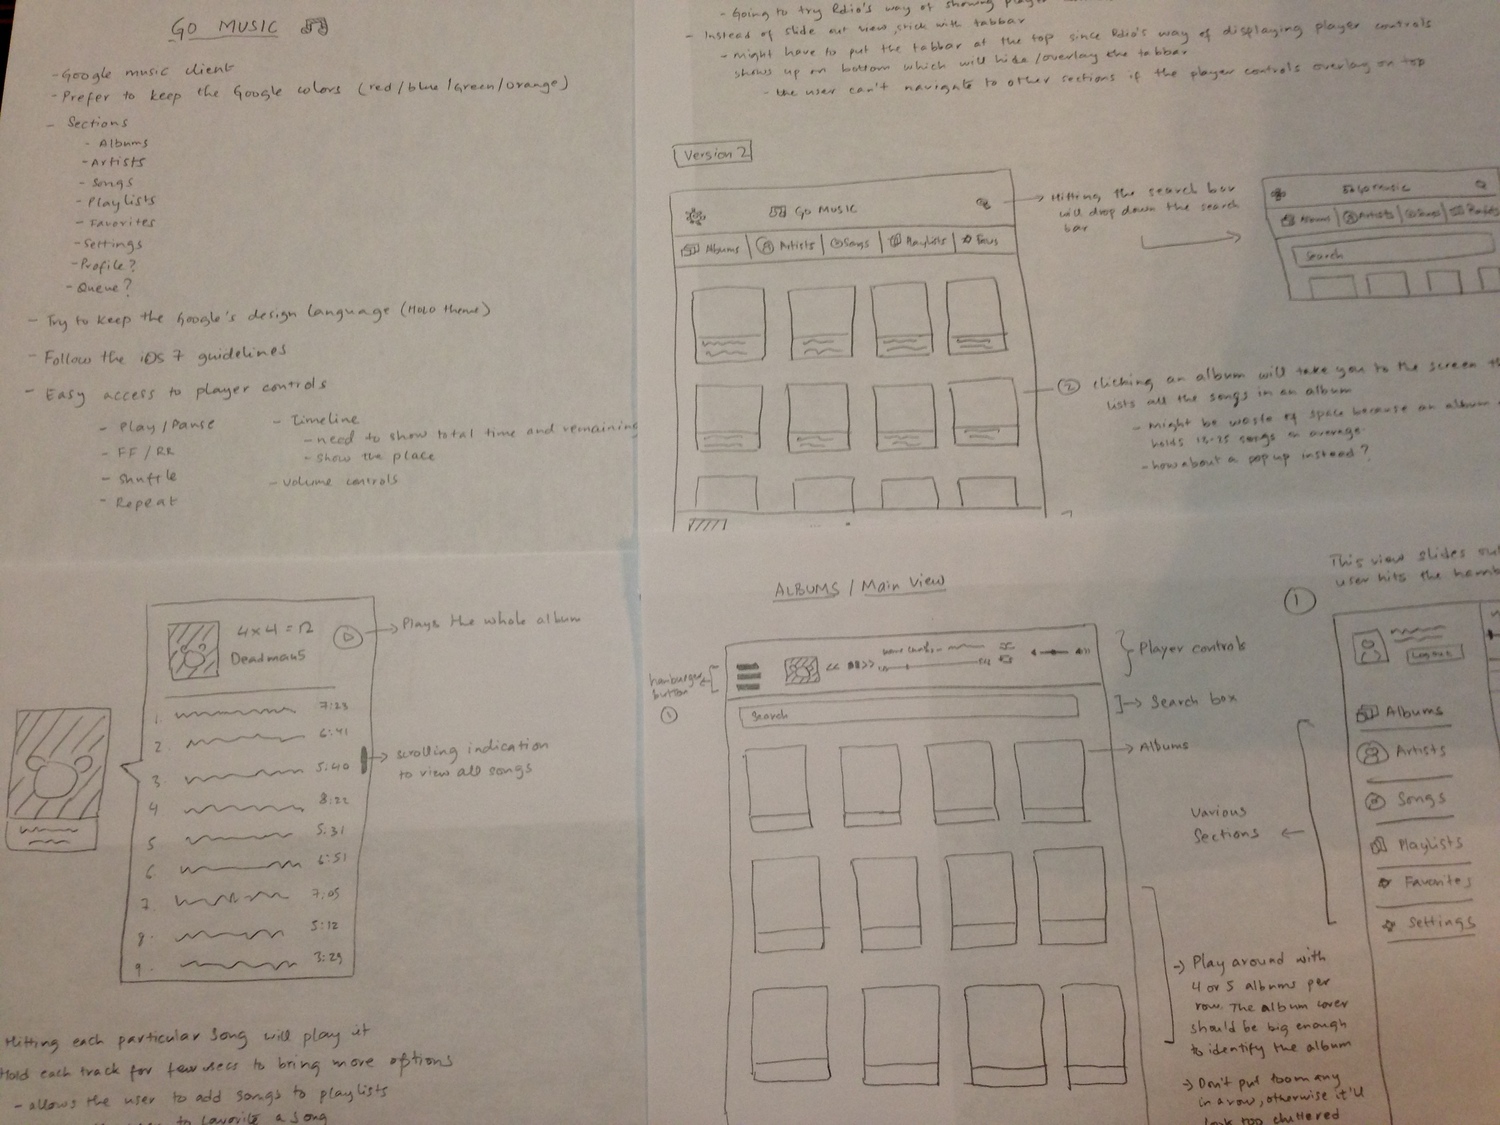 GO MUSIC
- Google music client
- Prefer to keep the Google colors (red/blue/green/orange)
- Sections
- Albums
- Artists
- Songs
- Playlists
- Favorites
- Settings
- Profile?
- Queue?
- Try to keep the Google's design language (Holo theme)
- Follow the iOS 7 guidelines
- Easy access to player controls
- Play/Pause
- FF/RR
- Shuffle
- Repeat
- Timeline
- need to show total time and remaining
- show the place
- volume controls
- Going to try Rdio's way of showing player
- Instead of slide out view, stick with tabbar
- might have to put the tabbar at the top since Rdio's way of displaying player controls
shows up on bottom which will hide/overlay the tabbar
- the user can't navigate to other sections if the player controls overlay on top
Version 2
GO MUSIC
Albums | Artists | Songs | Playlists | Favs
→ Hitting the search bar
will drop down the search
bar
GO MUSIC
Albums | Artists | Songs |
Search
② clicking an album will take you to the screen
lists all the songs in an album
- might be waste of space because an album
holds songs on average.
- how about a pop up instead?
4x4=12
Deadmau5
→ Plays the whole album
1. 7:23
2. 6:41
3. 5:40
4 8:22
5 5:31
6 6:51
7. 7:05
8. 5:12
9. 3:29
→ scrolling indication
to view all songs
Hitting each particular song will play it
Hold each track for few secs to bring more options
- allows the user to add songs to playlists
to favorite a song
ALBUMS / Main View
hamburger
button
①
Search
Player controls
→ Search box
→ Albums
→ Play around with
4 or 5 albums per
row. The album cover
should be big enough
to identify the album
→ Don't put too many
in a row, otherwise it'll
look too cluttered
This view slides out
user hits the
①
Logout
Albums
Artists
Songs
Playlists
Favorites
Settings
Various
Sections